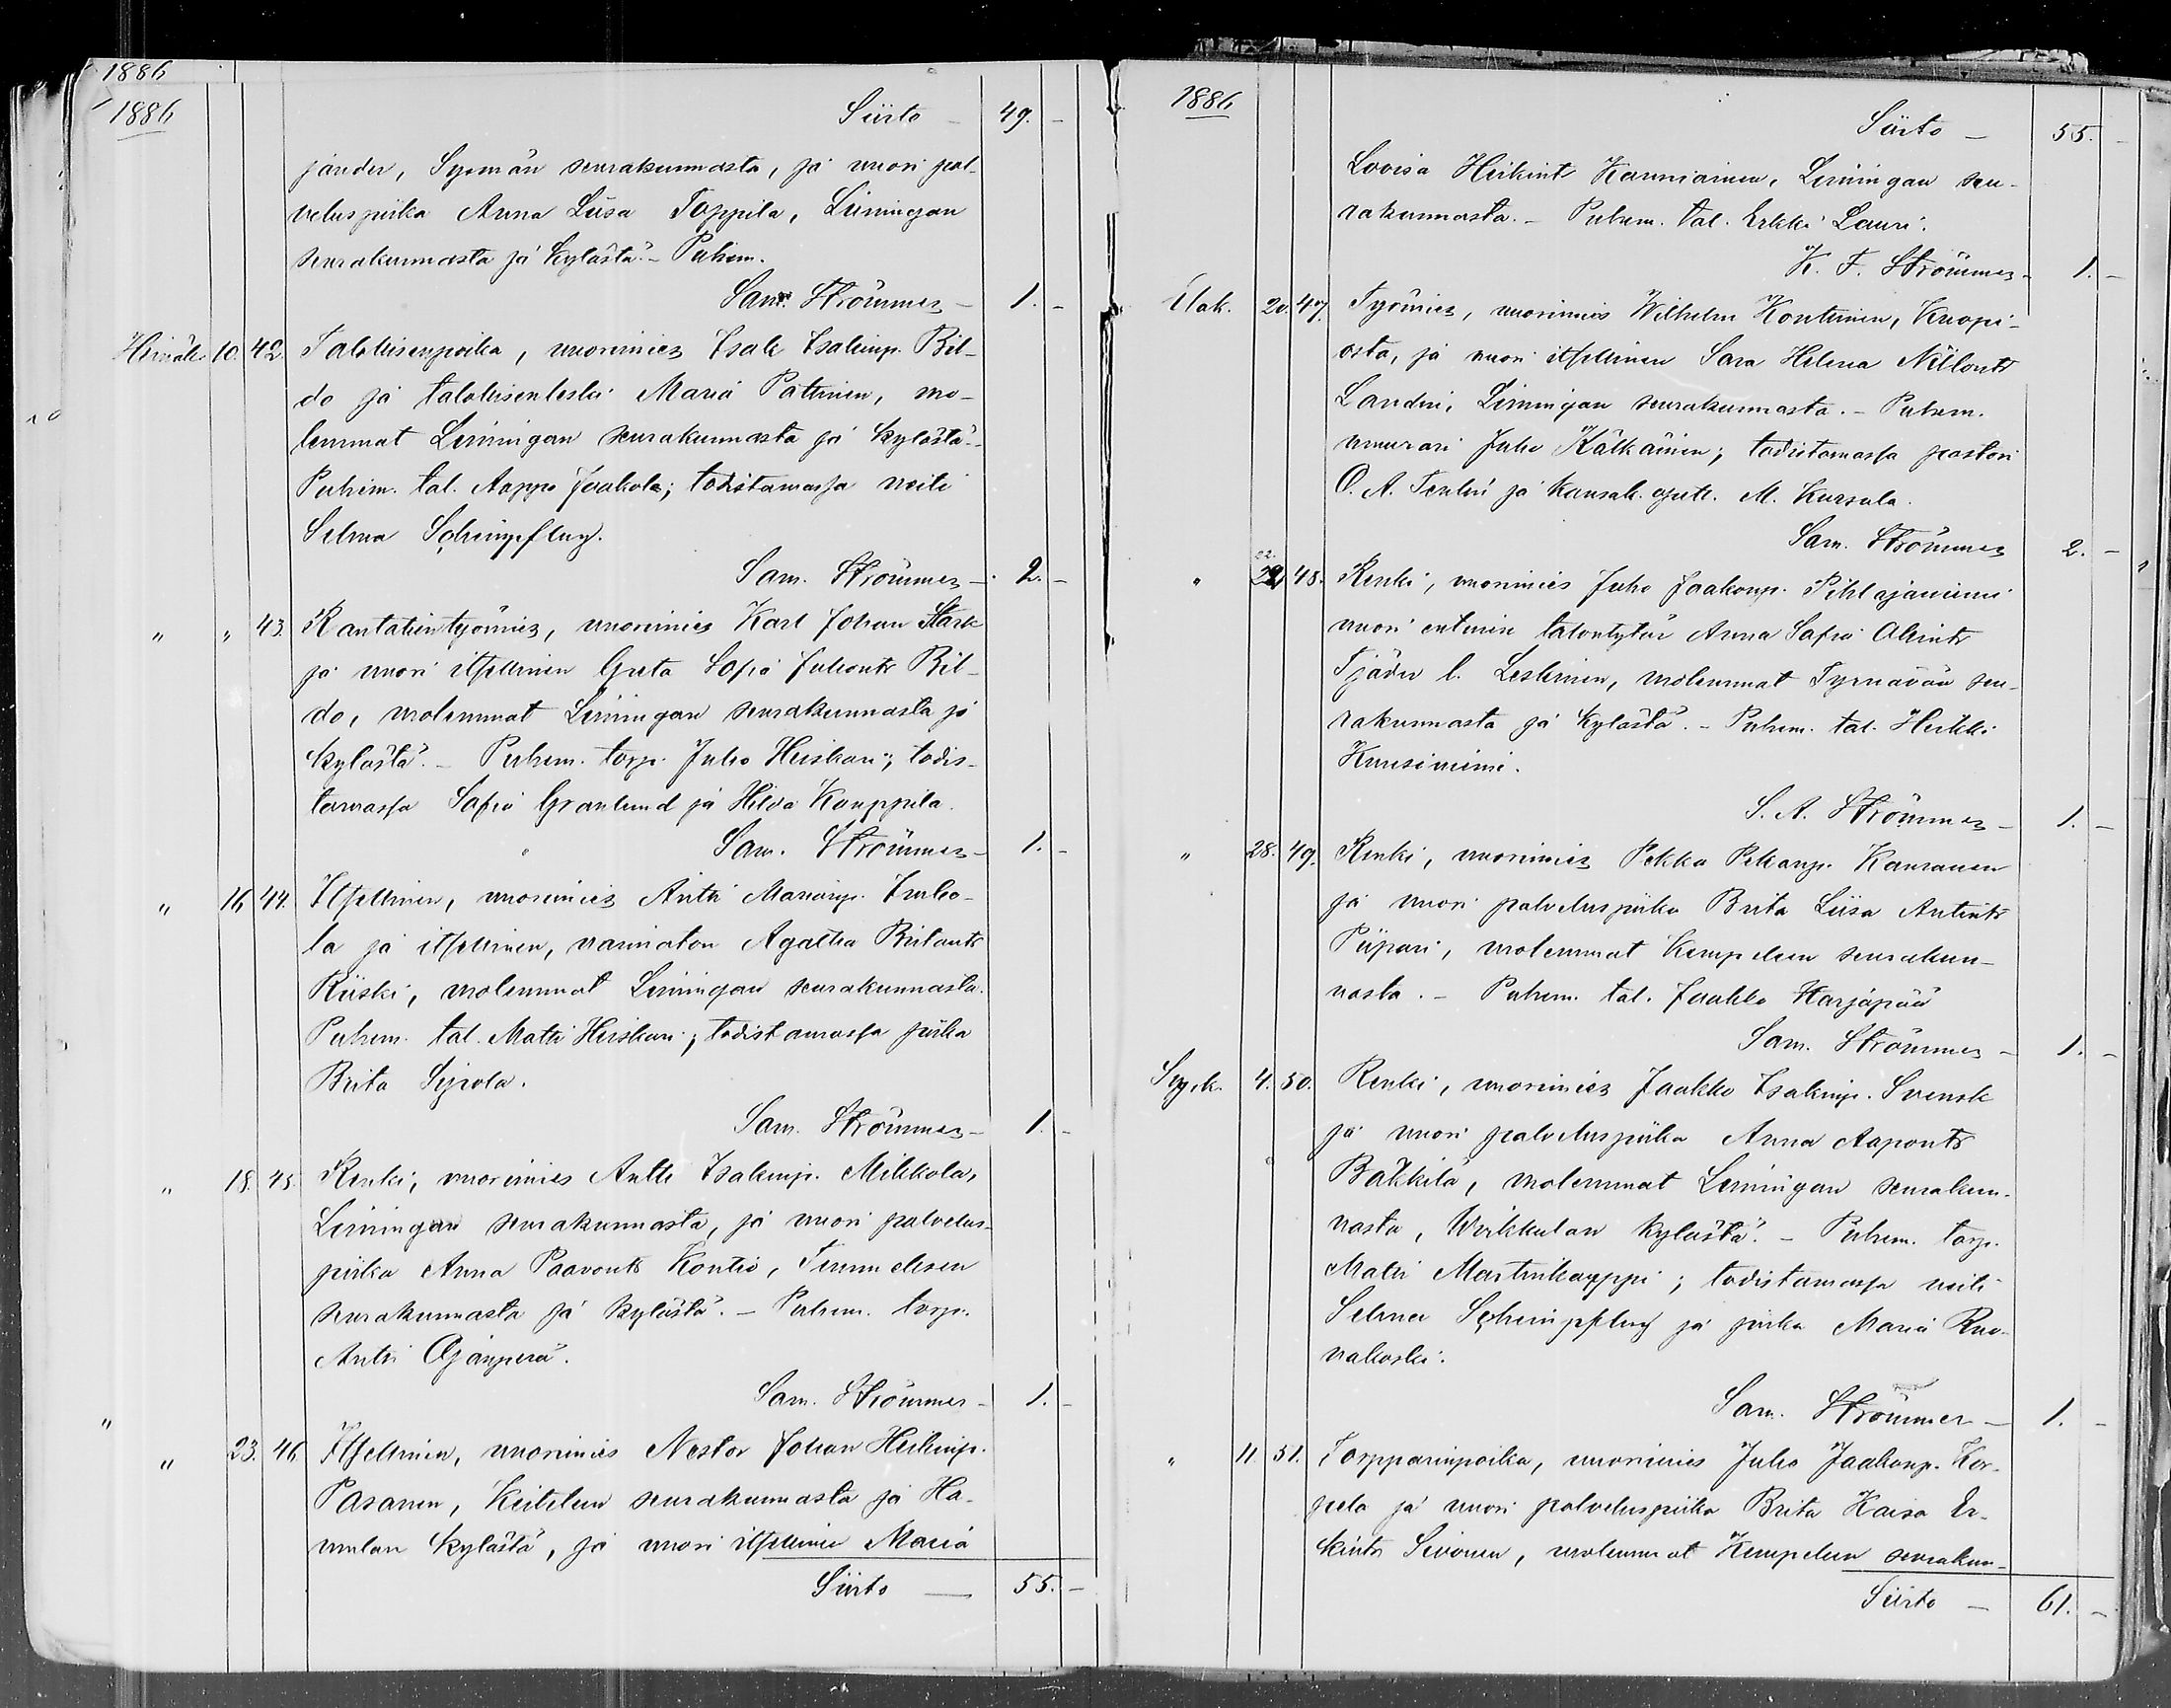 1886
1886
Siirto - 49. -
jander, Sysmän seurakunnasta, ja nuori pal-
veluspiika Anna Liisa Toppila, Limingan
seurakunnasta ja kylästä. - Puhem.
Sam. Strömmer - 1. -
Heinäk. 10. 42. Talollisenpoika, nuorimies Isak Isakinp. Bil-
do ja talollisenleski Maria Pättinen, mo-
lemmat Limingan seurakunnasta ja kylästä. -
Puhem. tal. Aappo Jaakola; todistamassa neiti
Selma Schimpflug.
Sam. Strömmer - 2. -
" " 43. Rautatientyömies, nuorimies Karl Johan Stark
ja nuori itsellinen Greta Sofia Juhont. Bil-
do, molemmat Limingan seurakunnasta ja
kylästä. - Puhem. torp. Juho Heiskari; todis-
tamassa Sofia Granlund ja Hilda Kauppila.
Sam. Strömmer - 1. -
" 16 44. Itsellinen, nuorimies Antti Marianp. Inho-
la ja itsellinen, vaimoton Agatha Britant
Riiski, molemmat Limingan seurakunnasta.
Puhem. tal. Matti Heiskari; todistamassa piika
Brita Sipola.
Sam. Strömmer - 1. -
" 18. 45. Renki, nuorimies Antti Isakinp. Mikkola,
Limingan seurakunnasta, ja nuori palvelus-
piika Anna Paavont. Kontio, Temmeksen
seurakunnasta ja kylästä. - Puhem. torp.
Antti Ojanperä.
Sam. Strömmer - 1. -
"
" 23. 46. Itsellinen, nuorimies Nestor Johan Heikinp.
Pasanen, Keiteleen seurakunnasta ja Ha-
mulan kylästä, ja nuori itsellinen Maria
Siirto - 55. -
1886
Siirto - 55. -
Lovisa Heikint. Kauniainen, Limingan seu-
rakunnasta. - Puhem. tal. Erkki Lauri.
K. F. Strömmer - 1. -
Elok. 20. 47. Työmies, nuorimies Wilhelm Kontinen, Kuopi-
osta, ja nuori itsellinen Sara Helena Niilont.
Landin, Limingan seurakunnasta. - Puhem.
muurari Juho Kälkäinen; todistamassa pastori
O. A. Tenlén ja kansak. opett. M. Kursula.
Sam. Strömmer 2. -
" 22. 48. Renki, nuorimies Juho Jaakonp. Pihlajaniemi
nuori entinen talontytär Anna Sofia Abrint.
Tjäder l. Leskinen, molemmat Tyrnävän seu-
rakunnasta ja kylästä. - Puhem. tal. Heikki
Kuusiniemi.
S. A. Strömmer - 1. -
" 28. 49. Renki, nuorimies Pekka Pekanp. Kauranen
ja nuori palveluspiika Brita Liisa Antint.
Piipari, molemmat Kempeleen seurakun-
nasta. - Puhem. tal. Jaakko Harjapää
Sam. Strömmer - 1. -
Syysk. 4. 50. Renki, nuorimies Jaakko Isakinp. Svensk
ja nuori palveluspiika Anna Aapont.
Bäkkilä, molemmat Limingan seurakun-
nasta, Wirkkulan kylästä. - Puhem. torp.
Matti Martinkauppi; todistamassa neiti
Selma Schimpflug ja piika Maria Ruo-
nakoski.
Sam. Strömmer - 1. -
" 11. 51. Torpparinpoika, nuorimies Juho Jaakonp. Kor-
pela ja nuori palveluspiika Brita Kaisa Er-
kint. Sivonen, molemmat Kempeleen seurakun-
Siirto - 61. -